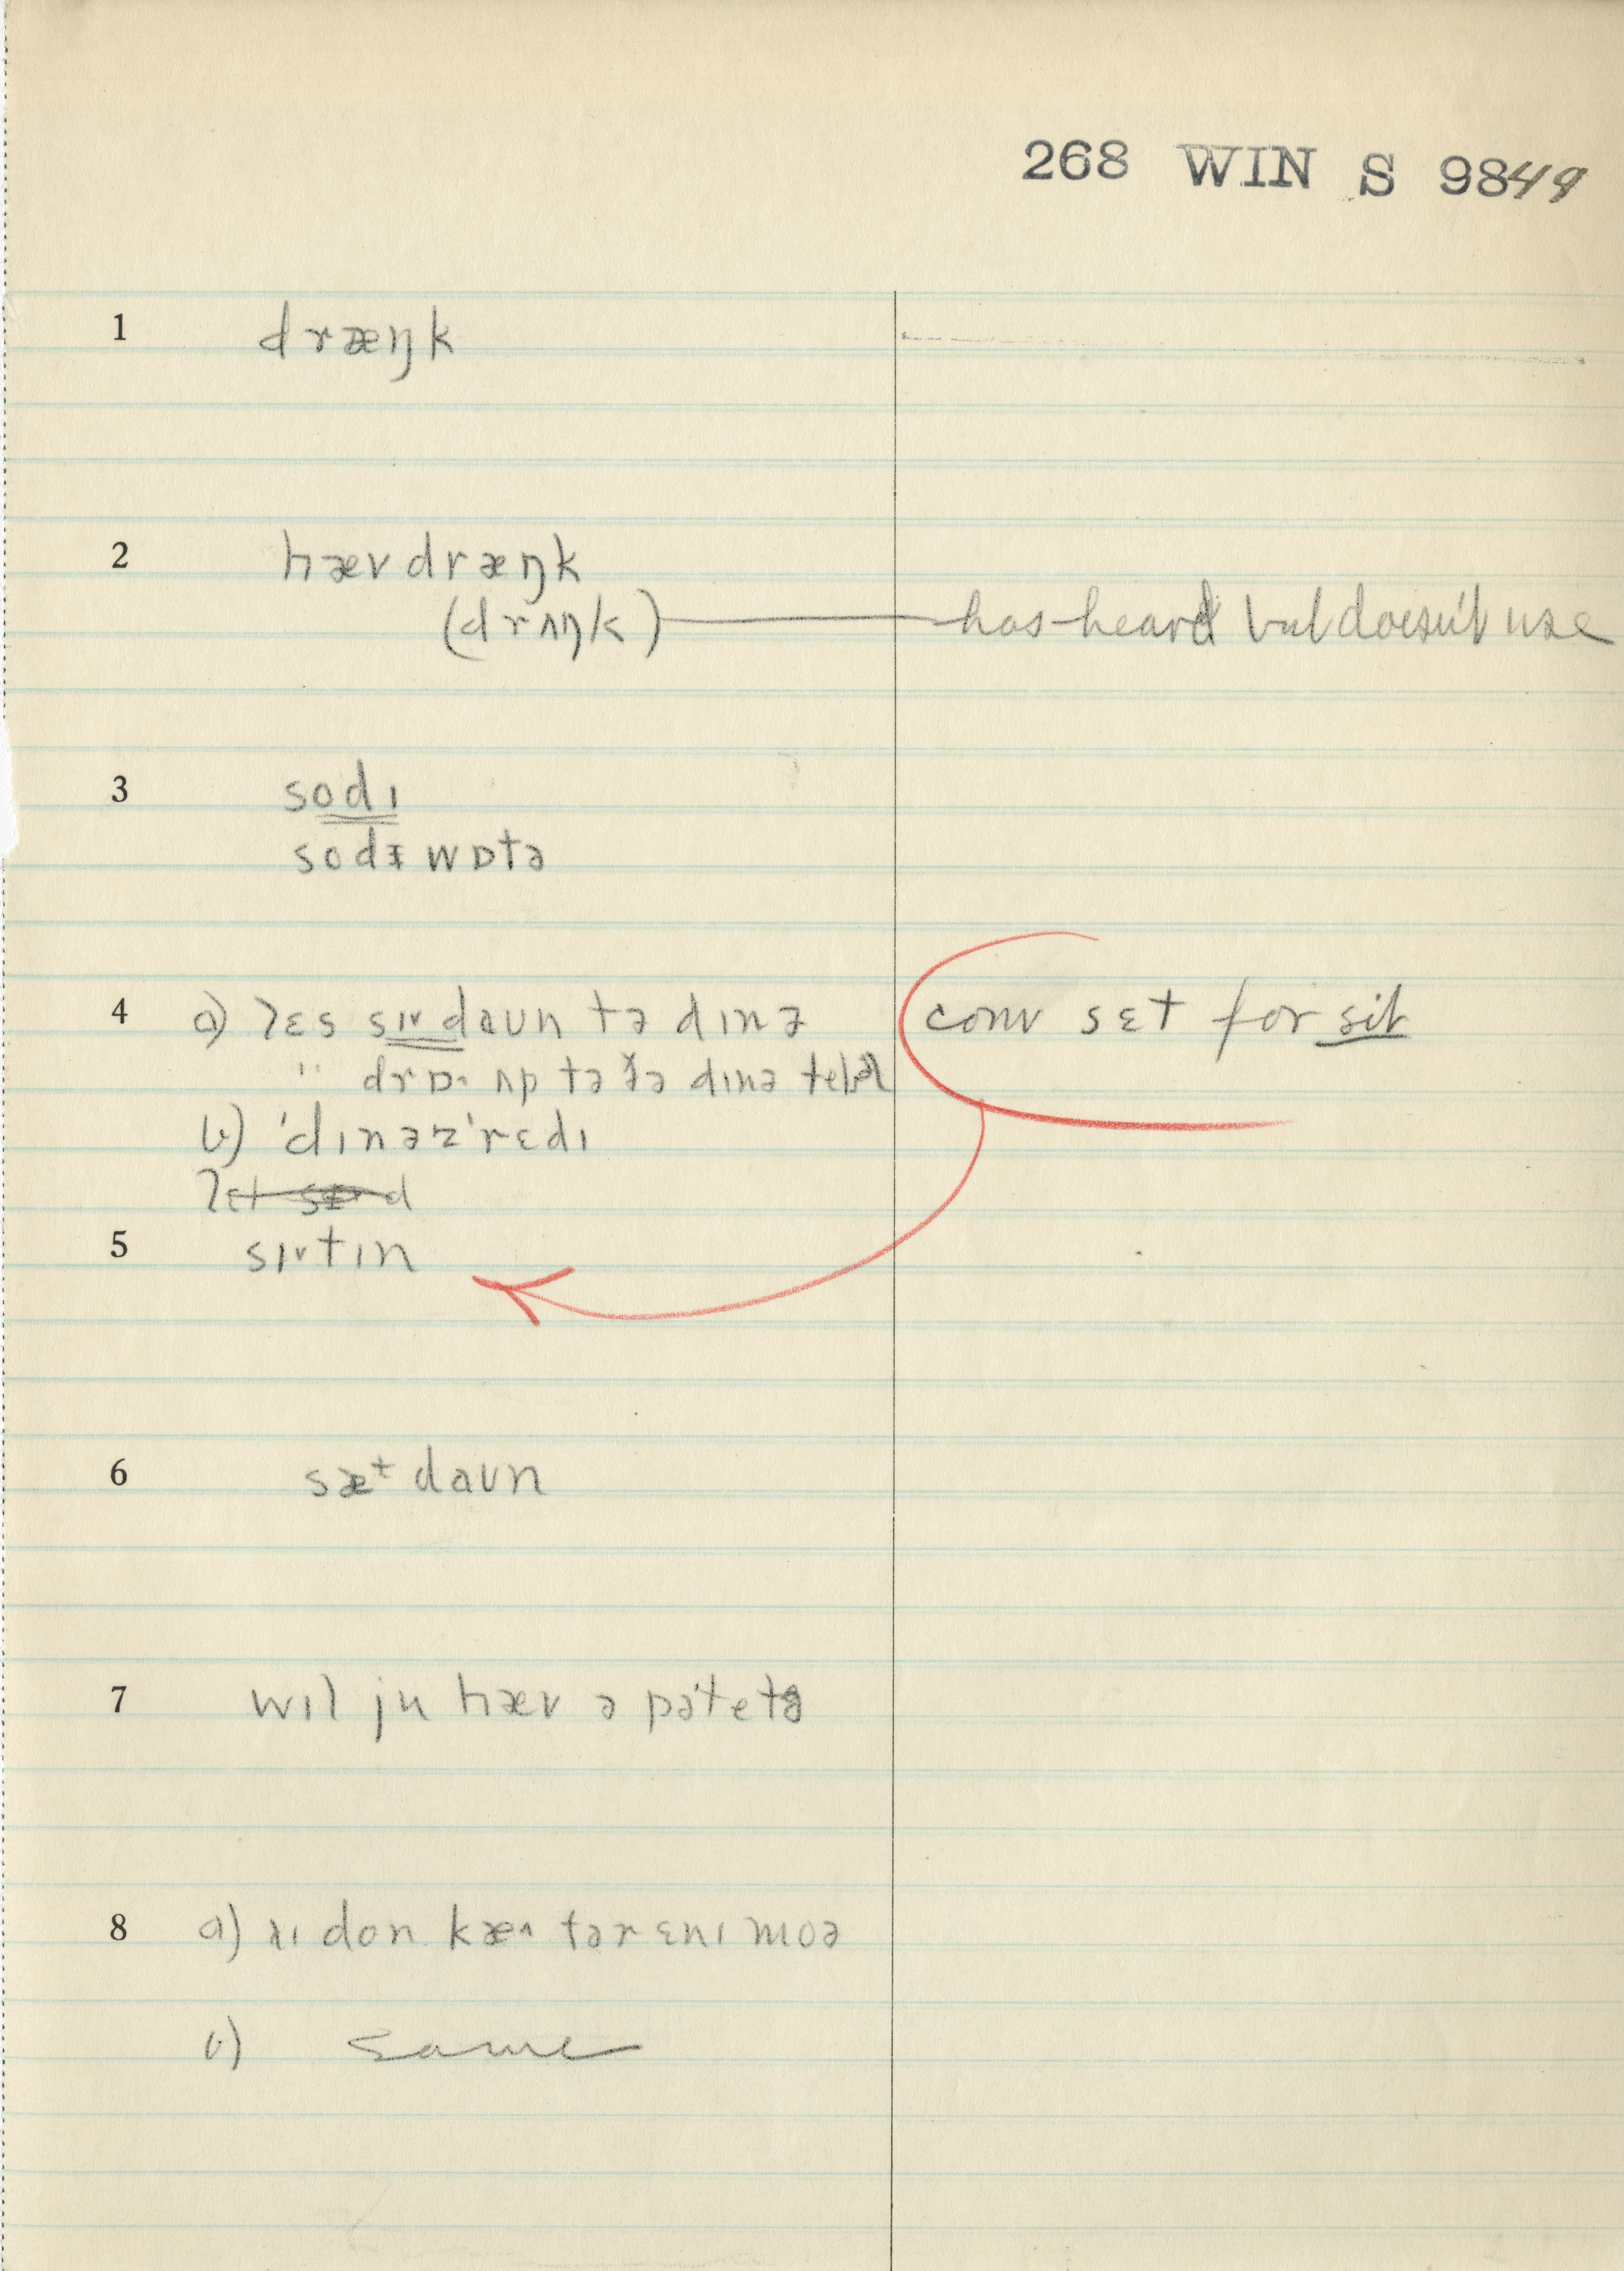 268 WIN S 9849
1 dræŋk
2 hæv dræŋk
(drʌŋk) — has heard but doesn't use
3 sodɪ
sodɪ wɒtə
4 a) lɛs sɪ˅daʊn tə dɪnə conv sɛt for sit
" drɒ· ʌp tə ðə dɪnə tebl
b) ˈdɪnəzˈrɛdɪ
5 sɪ˅tɪn
6 sæt daʊn
7 wɪl ju hæv ə pəˈtetə
8 a) don kæ^ fər ɛnɪ moə
b) same